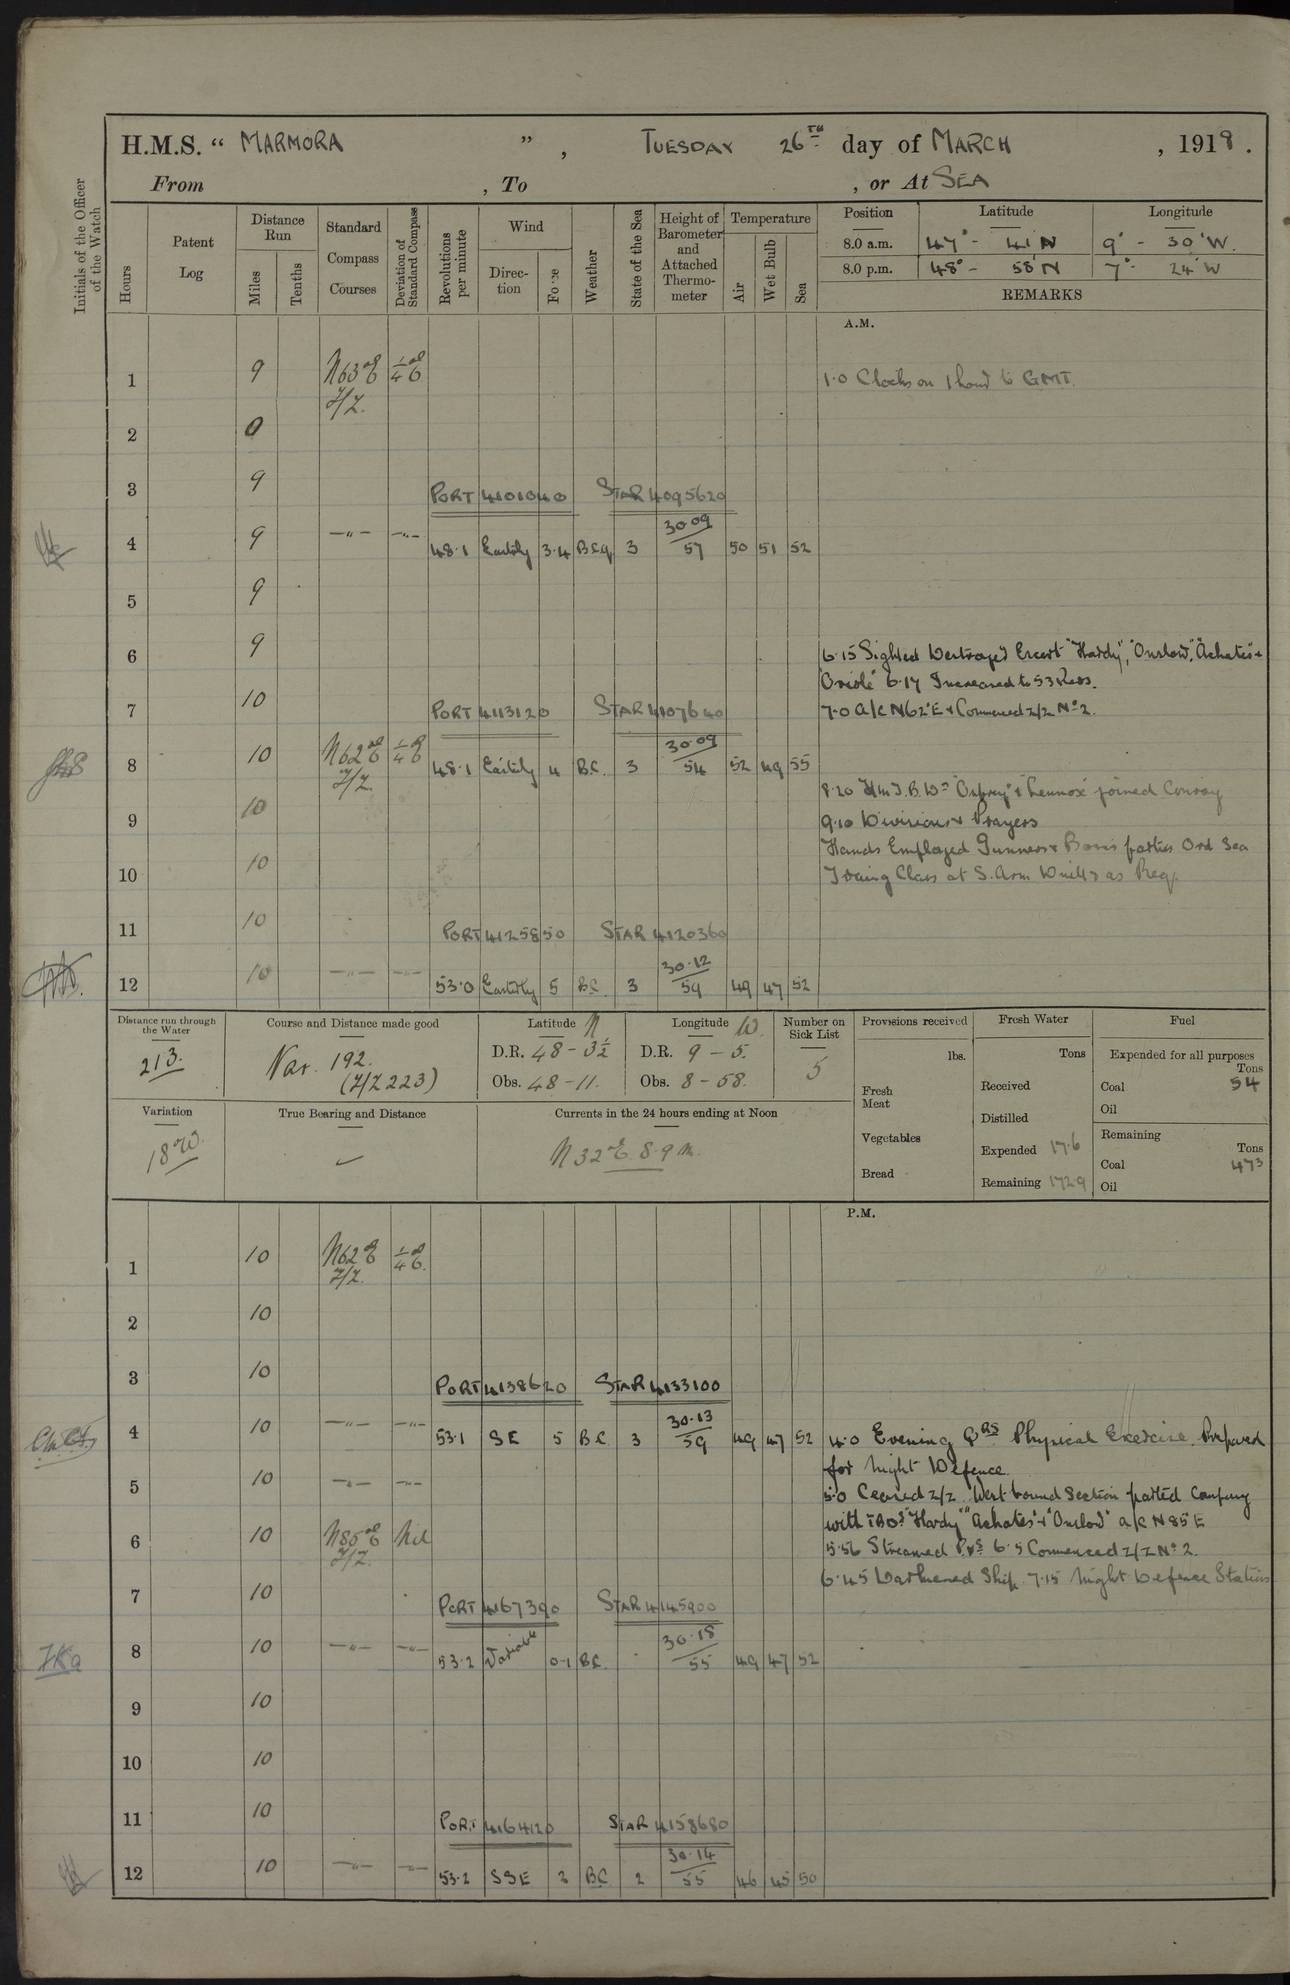 H.M.S. " MARMORA ", TUESDAY 26TH day of MARCH, 1918.
From , To , or At SEA
Initials of the Officer of the Watch
Hours
Patent Log
Distance Run
Miles
Tenths
Standard Compass Courses
Deviation of Standard Compass
Revolutions per minute
Wind
Direction
Force
Weather
State of the Sea
Height of Barometer and Attached Thermometer
Temperature
Air
Wet Bulb
Sea
Position Latitude Longitude
8.0 a.m. 47° - 41'N 9° - 30'W.
8.0 p.m. 48° - 58'N 7° - 24'W
REMARKS
A.M.
1 9 N63°E 1/4°E 1.0 Clocks on 1 hour to GMT.
Z/Z.
2 0
3 9 PORT 4101040 STAR 4095620
4 9 —"— —"— 48.1 Easterly 3.4 BCq 3 30.09/57 50 51 52
5 9
6 9 6.15 Sighted Destroyer Escort "Hardy", "Onslow", "Achates" +
"Oriole" 6.17 Increased to 53 Revs.
7 10 PORT 4113120 STAR 4107640 7.0 A/C N62°E + Commenced Z/Z No 2.
8 10 N62°E 1/4°E 48.1 Easterly 4 BC. 3 30.09/54 52 49 55
Z/Z.
8.20 H.M.T.B.Ds "Osprey" & "Lennox" joined Convoy
9 10 9.10 Divisions & Prayers
Hands Employed Gunners & Bosns parties Ord Sea
10 10 Traing Class at S. Arm Drill & as Req.
11 10 PORT 4125850 STAR 4120360
12 10 —"— —"— 53.0 Easterly 5 BC 3 30.12/59 49 47 52
Distance run through the Water
213.
Course and Distance made good
Var. 192.
(Z/Z 223)
Latitude N
D.R. 48 - 3½
Obs. 48 - 11.
Longitude W.
D.R. 9 - 5.
Obs. 8 - 58.
Number on Sick List
5
Provisions received
lbs.
Fresh Meat
Vegetables
Bread
Fresh Water
Tons
Received
Distilled
Expended 17.6
Remaining 1729
Fuel
Expended for all purposes
Tons
Coal 54
Oil
Remaining
Tons
Coal 473
Oil
Variation
18°W.
True Bearing and Distance
Currents in the 24 hours ending at Noon
N32°E 8.9 m.
P.M.
1 10 N62°E 1/4°E.
Z/Z.
2 10
3 10 PORT 4138620 STAR 4133100
4 10 —"— —"— 53.1 SE 5 BC 3 30.13/59 49 47 52 4.0 Evening Qrs Physical Exercise. Prepared
for Night Defence.
5 10 —"— —"— 5.0 Ceased Z/Z. West bound Section parted Company
with TBDs "Hardy" "Achates" + "Onslow" a/c N85°E
6 10 N85°E Nil 5.56 Streamed P.Vs. 6.5 Commenced Z/Z No 2.
Z/Z.
6.45 Darkened Ship. 7.15 Night Defence Stations
7 10 PORT 4167390 STAR 4145900
8 10 —"— —"— 53.2 Variable 0-1 BC. 30.18/55 49 47 52
9 10
10 10
11 10 PORT 4164120 STAR 4158680
12 10 —"— —"— 53.2 SSE 2 BC 2 30.14/55 46 45 50